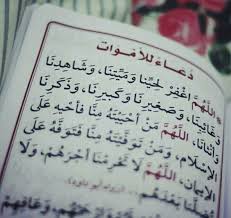 دُعَاءٌ لِلأَمْوَاتِ
اللَّهُمَّ اغْفِرْ لِحَيِّنَا وَمَيِّتِنَا، وَشَاهِدِنَا
وَغَائِبِنَا، وَصَغِيرِنَا وَكَبِيرِنَا، وَذَكَرِنَا
وَأُنْثَانَا، اللَّهُمَّ مَنْ أَحْيَيْتَهُ مِنَّا فَأَحْيِهِ عَلَى
الإِسْلَامِ، وَمَنْ تَوَفَّيْتَهُ مِنَّا فَتَوَفَّهُ عَلَى
الإِيمَانِ، اللَّهُمَّ لَا تَحْرِمْنَا أَجْرَهُمْ، وَلَا
بَعْدَهُمْ